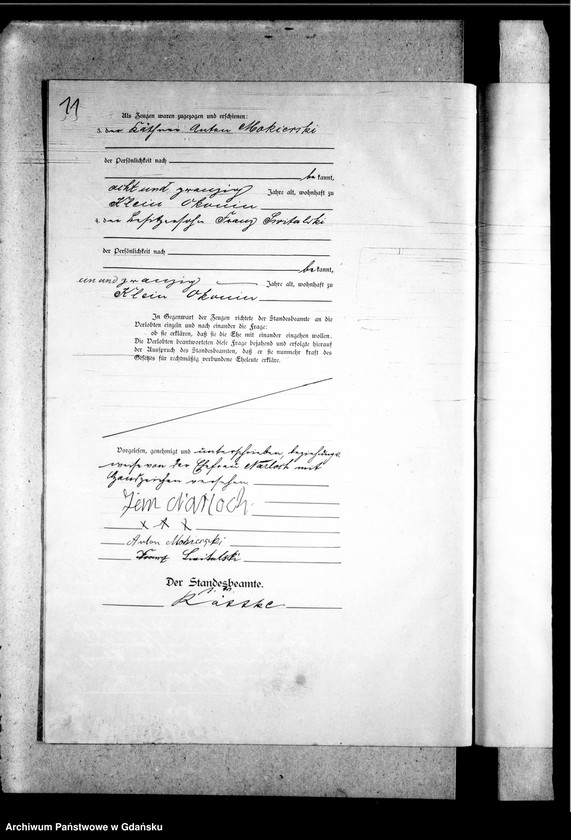 11
Als Zeugen waren zugezogen und erschienen:
3. der Käthner Anton Mokierski
der Persönlichkeit nach
be kannt,
acht und zwanzig Jahre alt, wohnhaft zu
Klein Okonin
4. der Besitzersohn Franz Switalski
der Persönlichkeit nach
be kannt,
ein und zwanzig Jahre alt, wohnhaft zu
Klein Okonin
In Gegenwart der Zeugen richtete der Standesbeamte an die
Verlobten einzeln und nach einander die Frage:
ob sie erklären, daß sie die Ehe mit einander eingehen wollen.
Die Verlobten beantworteten diese Frage bejahend und erfolgte hierauf
der Ausspruch des Standesbeamten, daß er sie nunmehr kraft des
Gesetzes für rechtmäßig verbundene Eheleute erkläre.
Vorgelesen, genehmigt und unterschrieben, beziehungs
weise von der Ehefrau Narloch mit
Handzeichen versehen
Narloch
x x x
Anton Mokierski
Franz Switalski
Der Standesbeamte.
Archiwum Państwowe w Gdańsku